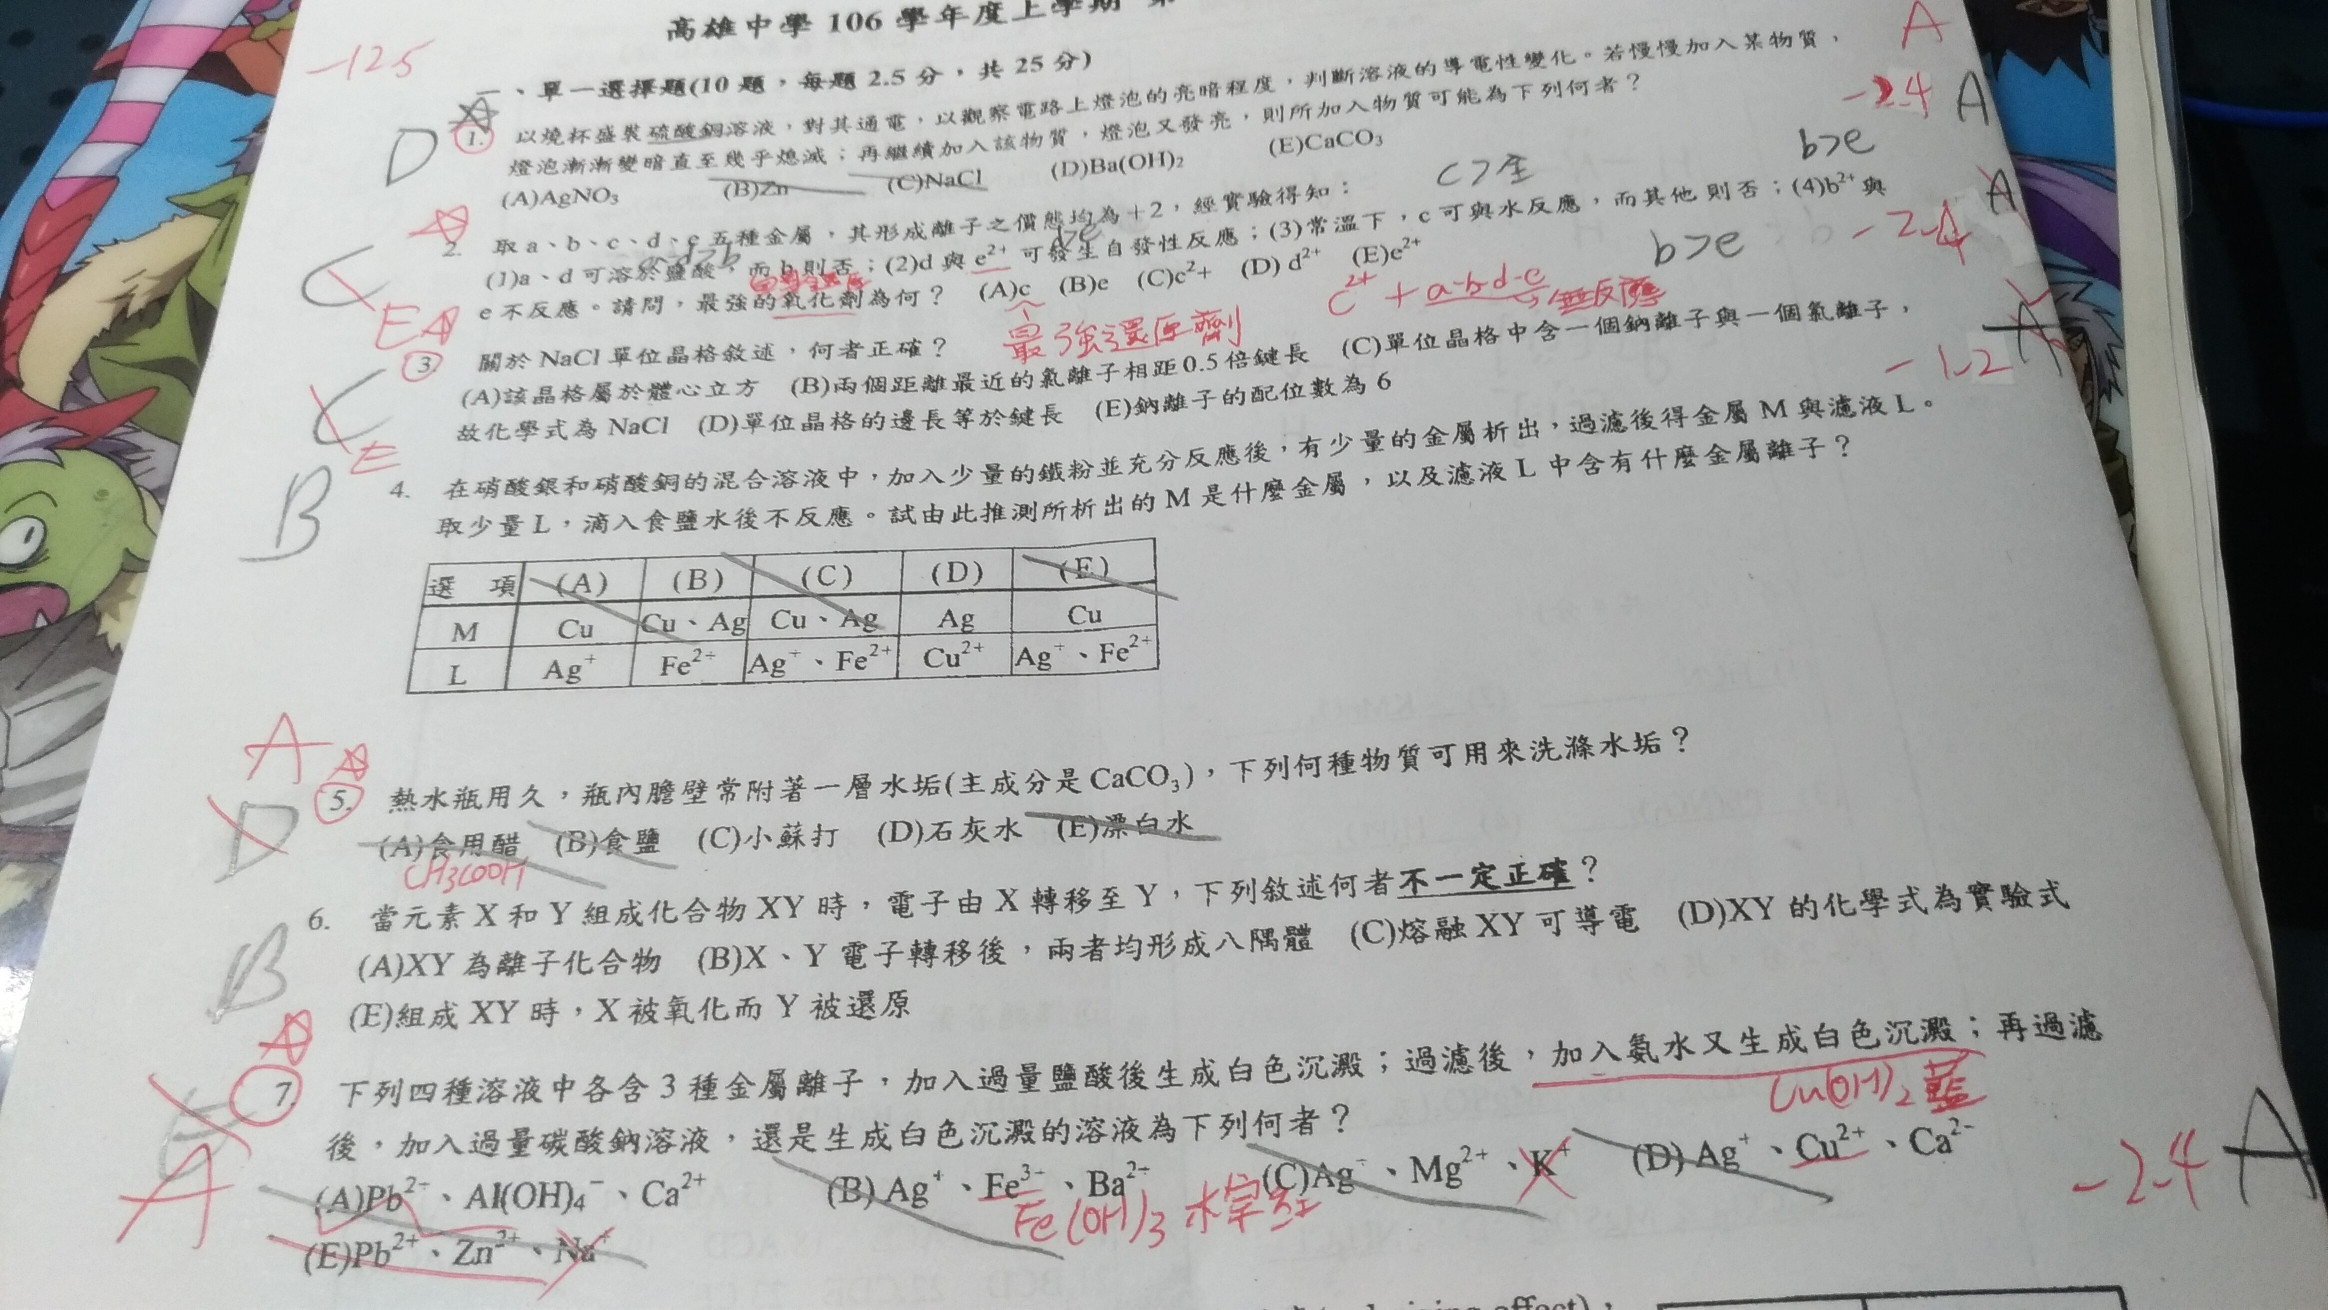 高雄中學 106 學年度上學期
-12.5
一、單一選擇題(10 題，每題 2.5 分，共 25 分)
A
D
1. 以燒杯盛裝硫酸銅溶液，對其通電，以觀察電路上燈泡的亮暗程度，判斷溶液的導電性變化。若慢慢加入某物質，
燈泡漸漸變暗直至幾乎熄滅；再繼續加入該物質，燈泡又發亮，則所加入物質可能為下列何者？
-2.4 A
(A)AgNO₃ (B)Zn (C)NaCl (D)Ba(OH)₂ (E)CaCO₃
c>全
b>e
2. 取 a、b、c、d、e 五種金屬，其形成離子之價態均為＋2，經實驗得知：
(1)a、d 可溶於鹽酸，而 b 則否；(2)d 與 e²⁺ 可發生自發性反應；(3)常溫下，c 可與水反應，而其他則否；(4)b²⁺ 與
b>e
-2.4
A
e 不反應。請問，最強的氧化劑為何？ (A)c (B)e (C)c²+ (D) d²⁺ (E)e²⁺
C
E
最強還原劑
c²⁺ + a.b.d.e → 無反應
3. 關於 NaCl 單位晶格敘述，何者正確？
(A)該晶格屬於體心立方 (B)兩個距離最近的氯離子相距 0.5 倍鍵長 (C)單位晶格中含一個鈉離子與一個氯離子，
故化學式為 NaCl (D)單位晶格的邊長等於鍵長 (E)鈉離子的配位數為 6
C
E
-1.2 A
B
4. 在硝酸銀和硝酸銅的混合溶液中，加入少量的鐵粉並充分反應後，有少量的金屬析出，過濾後得金屬 M 與濾液 L。
取少量 L，滴入食鹽水後不反應。試由此推測所析出的 M 是什麼金屬，以及濾液 L 中含有什麼金屬離子？
選 項 (A) (B) (C) (D) (E)
M Cu Cu、Ag Cu、Ag Ag Cu
L Ag⁺ Fe²⁺ Ag⁺、Fe²⁺ Cu²⁺ Ag⁺、Fe²⁺
A
D
5. 熱水瓶用久，瓶內膽壁常附著一層水垢(主成分是 CaCO₃)，下列何種物質可用來洗滌水垢？
(A)食用醋 (B)食鹽 (C)小蘇打 (D)石灰水 (E)漂白水
CH3COOH
B
6. 當元素 X 和 Y 組成化合物 XY 時，電子由 X 轉移至 Y，下列敘述何者不一定正確？
(A)XY 為離子化合物 (B)X、Y 電子轉移後，兩者均形成八隅體 (C)熔融 XY 可導電 (D)XY 的化學式為實驗式
(E)組成 XY 時，X 被氧化而 Y 被還原
7. 下列四種溶液中各含 3 種金屬離子，加入過量鹽酸後生成白色沉澱；過濾後，加入氨水又生成白色沉澱；再過濾
Cu(OH)₂ 藍
後，加入過量碳酸鈉溶液，還是生成白色沉澱的溶液為下列何者？
(A)Pb²⁺、Al(OH)₄⁻、Ca²⁺ (B) Ag⁺、Fe³⁺、Ba²⁺ (C)Ag⁺、Mg²⁺、K⁺ (D) Ag⁺、Cu²⁺、Ca²⁺
Fe(OH)₃ 棕紅
-2.4 A
A
(E)Pb²⁺、Zn²⁺、Na⁺